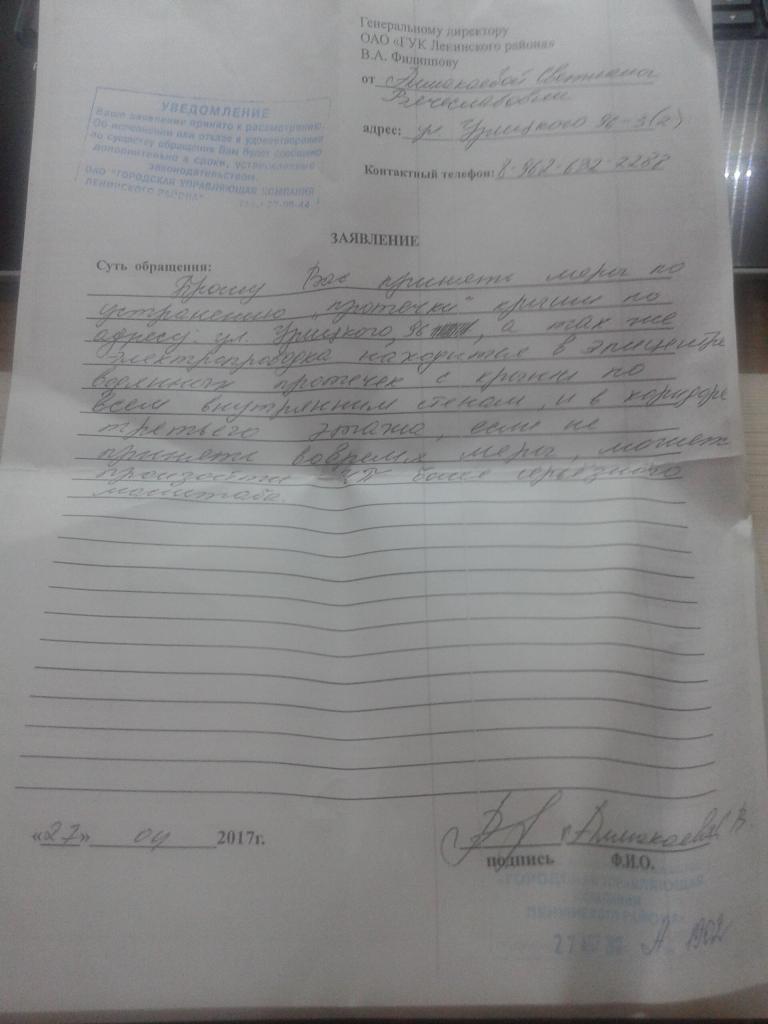 Генеральному директору
ОАО «ГУК Ленинского района»
В.А. Филиппову
от Алмакаевой Светланы
Вячеславовны
адрес: ул. Урицкого 96-3(а)
Контактный телефон: 8-962-632-2287
УВЕДОМЛЕНИЕ
Ваше заявление принято к рассмотрению.
Об исполнении или отказе в удовлетворении
по существу обращения Вам будет сообщено
дополнительно в сроки, установленные
законодательством.
ОАО "ГОРОДСКАЯ УПРАВЛЯЮЩАЯ КОМПАНИЯ
ЛЕНИНСКОГО РАЙОНА"
ЗАЯВЛЕНИЕ
Суть обращения:
Прошу Вас принять меры по
устранению "протечки" крыши по
адресу: ул. Урицкого, 96, а так же
электропроводка находится в эпицентре
водяных протечек с крыши по
всем внутренним стенам, и в коридоре
третьего этажа, если не
принять вовремя меры, может
произойти ЧП более серьёзного
масштаба.
«27» 04 2017г.
подпись Ф.И.О.
"ГОРОДСКАЯ УПРАВЛЯЮЩАЯ
КОМПАНИЯ
ЛЕНИНСКОГО РАЙОНА"
27
А 1902